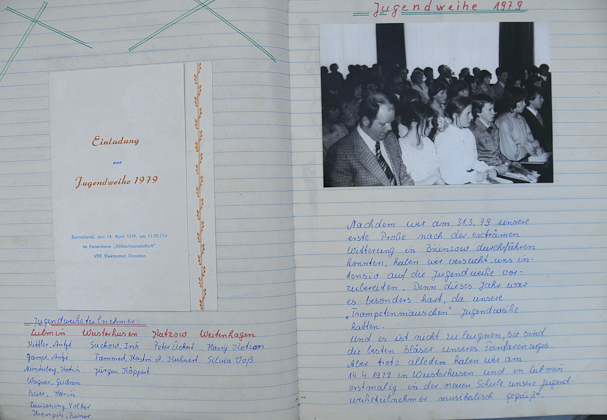 Einladung
zur
Jugendweihe 1979
Sonnabend, den 14. April 1979, um 11.00 Uhr
im Ferienheim „Völkerfreundschaft“
VEB Elektromat Dresden
Jugendweiheteilnehmer:
Lubmin Wusterhusen Katzow Weitenhagen
Suckow, Iris Peter Hany
Tammert, Silvia Voß
Jürgen Köppert
Wagner, Gudrun
Buse, Karin
Volker
Rainer
Jugendweihe 1979
Nachdem wir am 31.3.79 unsere
erste Probe nach der extremen
Witterung in Brünzow durchführen
konnten, haben wir versucht, uns in-
tensiv auf die Jugendweihe vor-
zubereiten. Denn dieses Jahr war
es besonders hart, da unsere
„Trompetenmäuschen“ Jugendweihe
hatten.
Und es ist nicht zu leugnen, sie sind
die besten Bläser unseres Fanfarenzuges.
Aber trotz alledem haben wir am
14.4.1979 in Wusterhusen und in Lubmin
erstmalig in der neuen Schule unsere Jugend-
weiheteilnehmer musikalisch geprägt.